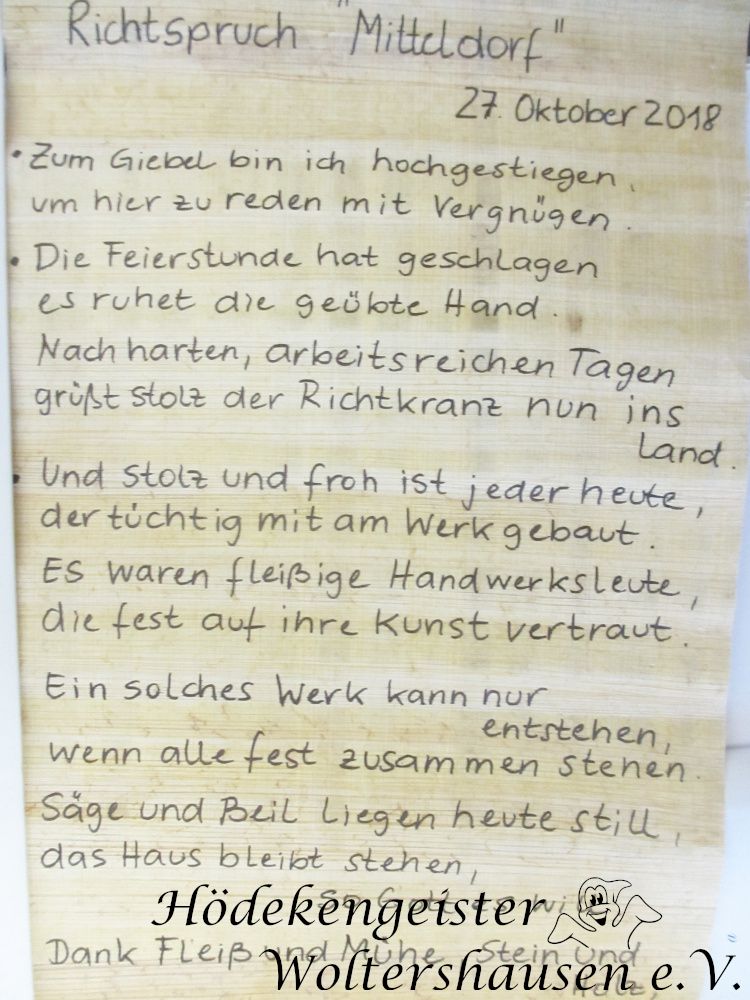 Richtspruch "Mitteldorf"
27. Oktober 2018
• Zum Giebel bin ich hochgestiegen,
um hier zu reden mit Vergnügen.
• Die Feierstunde hat geschlagen
es ruhet die geübte Hand.
Nach harten, arbeitsreichen Tagen
grüßt stolz der Richtkranz nun ins
Land.
• Und stolz und froh ist jeder heute,
der tüchtig mit am Werk gebaut.
Es waren fleißige Handwerksleute,
die fest auf ihre Kunst vertraut.
Ein solches Werk kann nur
entstehen,
wenn alle fest zusammen stehen.
Säge und Beil liegen heute still,
das Haus bleibt stehen,
so Gott es will
Hödekengeister
Dank Fleiß und Mühe, Stein und
Holz
Woltershausen e.V.